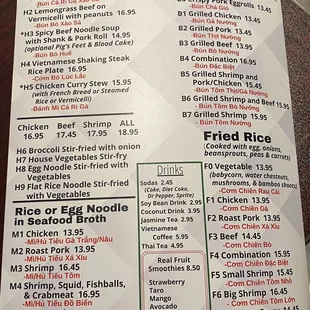 H2 Lemongrass Beef on
Vermicelli with peanuts 16.95
-Bún Bò Xào
*H3 Spicy Beef Noodle Soup
with Shank & Pork Roll 14.95
(optional Pig's Feet & Blood Cake)
-Bún Bò Huế
H4 Vietnamese Shaking Steak
Rice Plate 16.95
-Cơm Bò Lúc Lắc
*H5 Chicken Curry Stew 15.95
(with French Bread or Steamed
Rice or Vermicelli)
-Bánh Mì Cà Ri Gà
Chicken Beef Shrimp ALL
16.95 17.45 17.95 18.95
H6 Broccoli Stir-fried with onion
H7 House Vegetables Stir-fry
H8 Egg Noodle Stir-fried with
Vegetables
H9 Flat Rice Noodle Stir-fried
with Vegetables
Rice or Egg Noodle
in Seafood Broth
M1 Chicken 13.95
-Mì/Hủ Tiếu Gà Trắng/Nâu
M2 Roast Pork 13.95
-Mì/Hủ Tiếu Xá Xíu
M3 Shrimp 16.45
-Mì/Hủ Tiếu Tôm
M4 Shrimp, Squid, Fishballs,
& Crabmeat 16.95
-Mì/Hủ Tiếu Đồ Biển
Drinks
Sodas 2.45
(Coke, Diet Coke,
Dr Pepper, Sprite)
Soy Bean Drink 2.95
Coconut Drink 3.95
Jasmine Tea 2.95
Vietnamese
Coffee 5.95
Thai Tea 4.95
Real Fruit
Smoothies 8.50
Strawberry
Taro
Mango
Avocado
Crispy Pork Eggrolls 13.45
-Bún Chả Giò
B1 Grilled Chicken 13.45
-Bún Gà Nướng
B2 Grilled Pork 13.45
-Bún Thịt Nướng
B3 Grilled Beef 13.45
-Bún Bò Nướng
B4 Combination 16.95
-Bún Đặc Biệt
B5 Grilled Shrimp and
Pork/Chicken 15.45
-Bún Tôm Thịt/Gà Nướng
B6 Grilled Shrimp and Beef 15.95
-Bún Tôm Bò Nướng
B7 Grilled Shrimp 15.45
-Bún Tôm Nướng
Fried Rice
(Cooked with egg, onions,
beansprouts, peas & carrots)
F0 Vegetable 13.95
(babycorn, water chestnuts,
mushrooms, & bamboo shoots)
-Cơm Chiên Rau Cải
F1 Chicken 13.95
-Cơm Chiên Gà
F2 Roast Pork 13.95
-Cơm Chiên Xá Xíu
F3 Beef 14.45
-Cơm Chiên Bò
F4 Combination 15.95
-Cơm Chiên Đặc Biệt
F5 Small Shrimp 15.45
-Cơm Chiên Tôm Nhỏ
F6 Big Shrimp 16.45
-Cơm Chiên Tôm Lớn